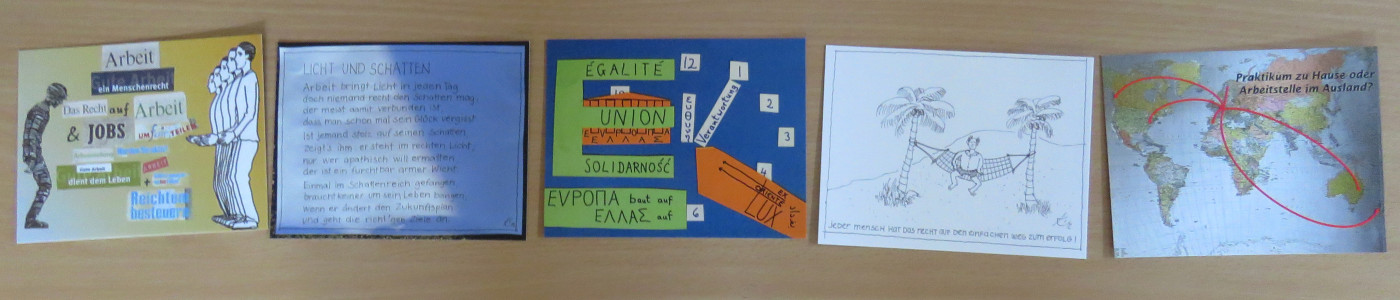 Arbeit
Gute Arbeit
ein Menschenrecht
Das Recht auf Arbeit
& JOBS
UM fair TEILEN
dient dem Leben
Reichtum
besteuern
LICHT UND SCHATTEN
Arbeit bringt Licht in jeden Tag
doch niemand recht den Schatten mag,
der meist damit verbunden ist
dass man schon mal sein Glück vergisst
Ist jemand stolz auf seinen Schatten
zeigt's ihm: er steht im rechten Licht,
nur wer apathisch will ermatten
der ist ein furchtbar armer Wicht.
Einmal im Schattenreich gefangen
braucht keiner um sein Leben bangen,
wenn er ändert den Zukunftsplan
und geht die richt'gen Ziele an.
ÉGALITÉ
10
UNION
ΕΛΛΑΣ
SOLIDARNOŚĆ
ΕVΡΟΠΑ baut auf
ΕΛΛΑΣ auf
12
1
2
3
4
6
Verantwortung
EX
ORIENTE
LUX
JEDER MENSCH HAT DAS RECHT AUF DEN EINFACHEN WEG ZUM ERFOLG!
Praktikum zu Hause oder
Arbeitstelle im Ausland?